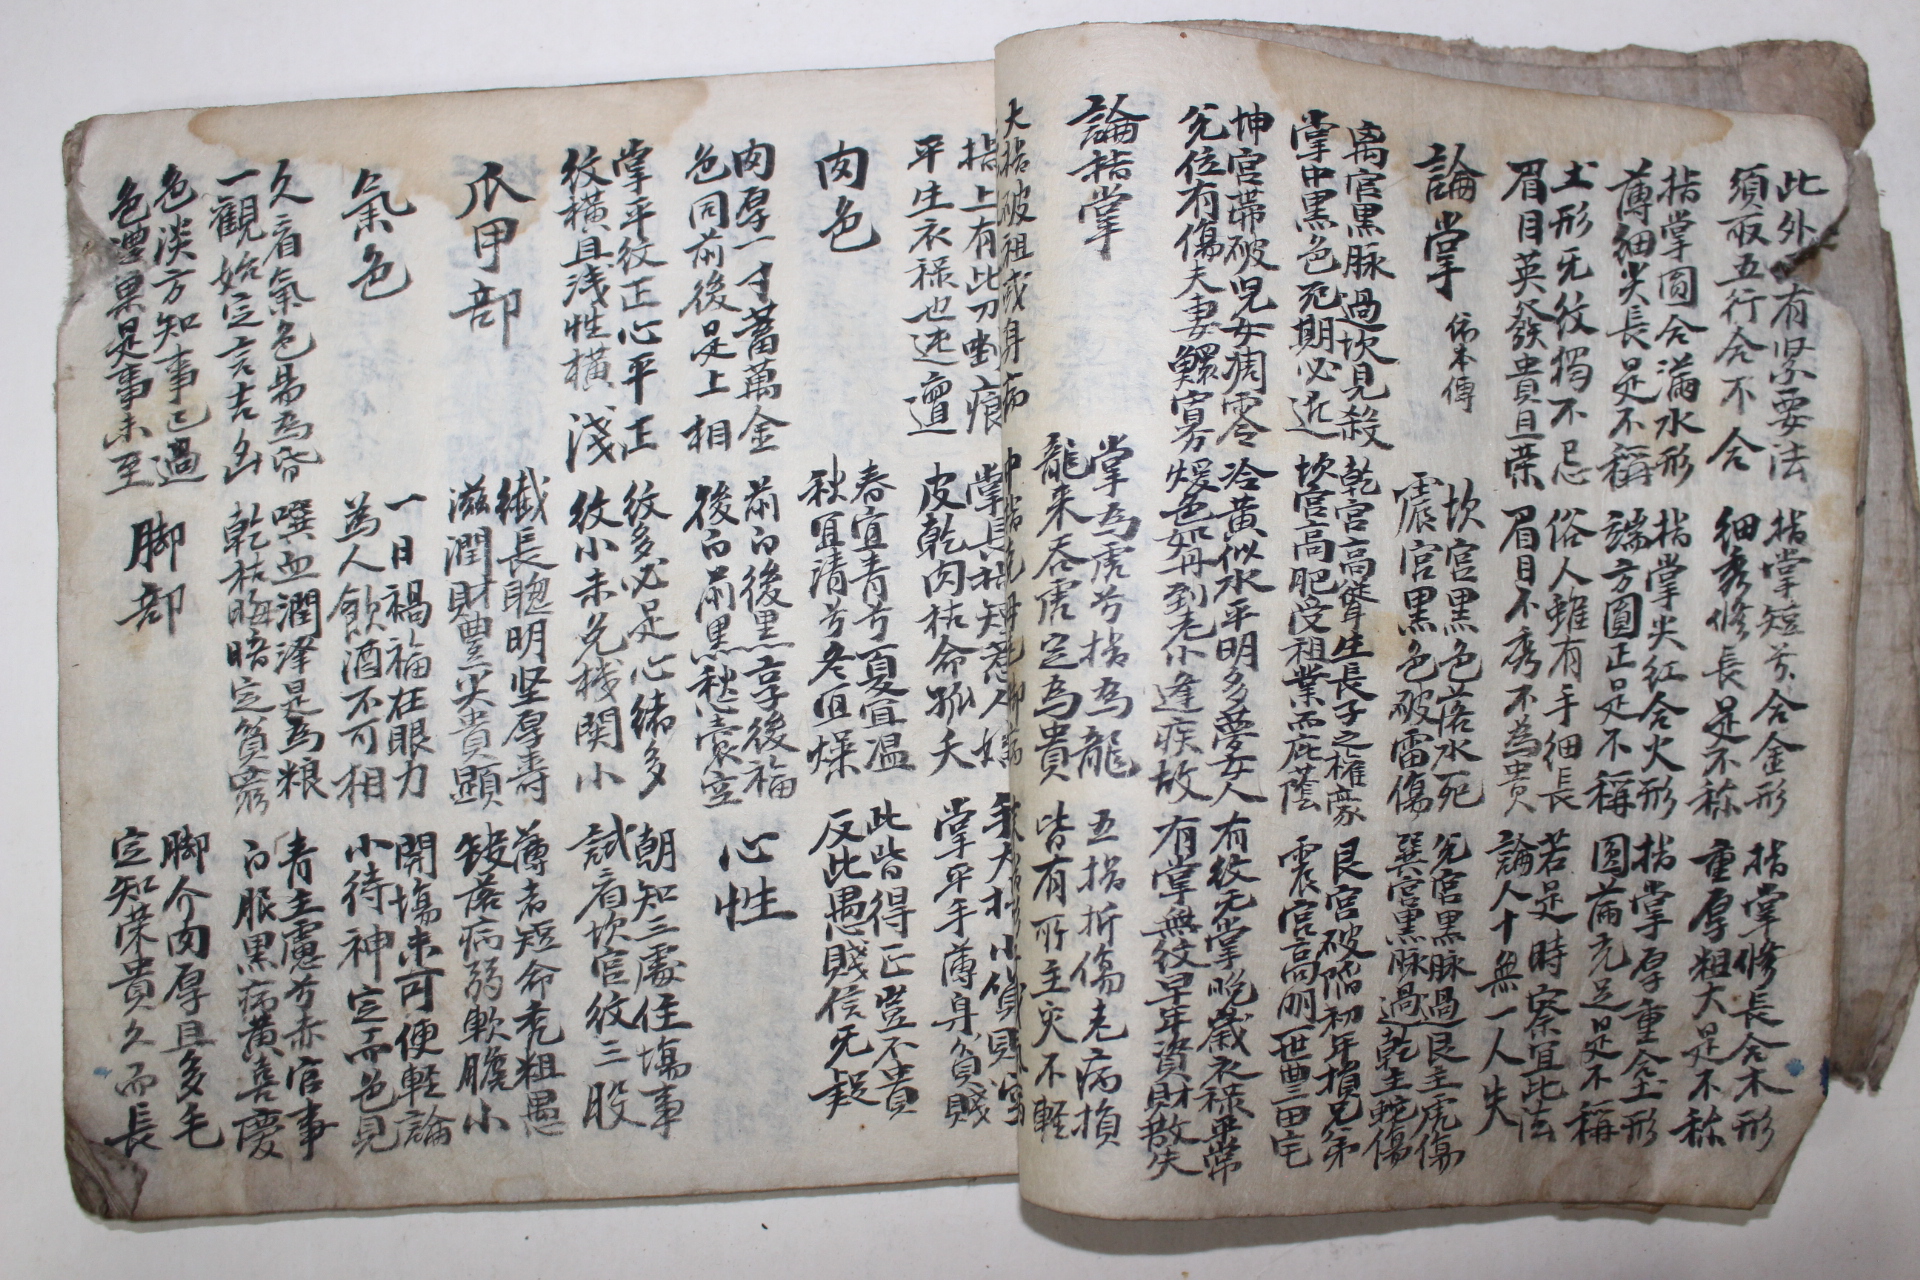 此外又有緊要法
須取五行合不合
指掌短方合金形
細秀修長是不称
指掌修長合木形
重厚粗大是不称
指掌圓合滿水形
薄細尖長是不稱
指掌尖紅合火形
端方圓正是不稱
指掌厚重合土形
圓滿充足是不稱
土形无紋獨不忌
眉目英發貴且荣
俗人雖有手細長
眉目不秀不為貴
若是時察宜此法
論人十無一人失
論掌 俗本傳
坎宮黑色落水死
震宮黑色破雷傷
兌宮黑脉過艮主虎傷
巽宮黑脉過乾主蛇傷
离宮黑脉過坎見殺
掌中黑色死期必近
乾宮高聳生長子之權豪
坎宮高肥受祖業而庇蔭
艮宮破陷初年損兄弟
震宮高明一世田宅
坤宮帶破児女凋零
兌位有傷夫妻鰥寡
冷黃似水平明多夢女人
煖色如丹到老不逢疾故
有紋无掌晩歲衣祿平常
有掌無紋早年資財散失
論指掌
掌為虎兮指為龍
龍来吞虎定為貴
五指折傷老病損
皆有所主灾不軽
大指破祖或身病
中指克母
指上有此刀痕
平生衣禄也迍邅
掌長指短惹人
皮乾肉枯命孤夭
掌平手薄身貧賤
肉色
春宜青兮夏宜温
秋宜清兮冬宜燥
此皆得正豈不貴
反此愚賤信无疑
肉厚一寸蓄萬金
色同前後是上相
前白後黑享後福
後白前黑愁囊空
心性
掌平紋正心平正
紋橫且浅性橫淺
紋多必是心緒多
紋小未免機関小
朝知三處住塲事
試看坎宮紋三股
爪甲部
纖長聰明坚厚寿
滋潤財豊尖貴顕
薄者短命禿粗愚
缺落病弱軟膽小
氣色
一日禍福在眼力
為人飲酒不可相
開塲未可便軽論
小待神定而色見
久看氣色易為昏
一觀始定言吉凶
噀血潤澤是為粮
乾枯晦暗定貧窮
青主慮兮赤官事
白服黑病黄喜慶
色淡方知事已過
色濃果是事未至
脚部
脚介肉厚且多毛
定知荣貴久而長